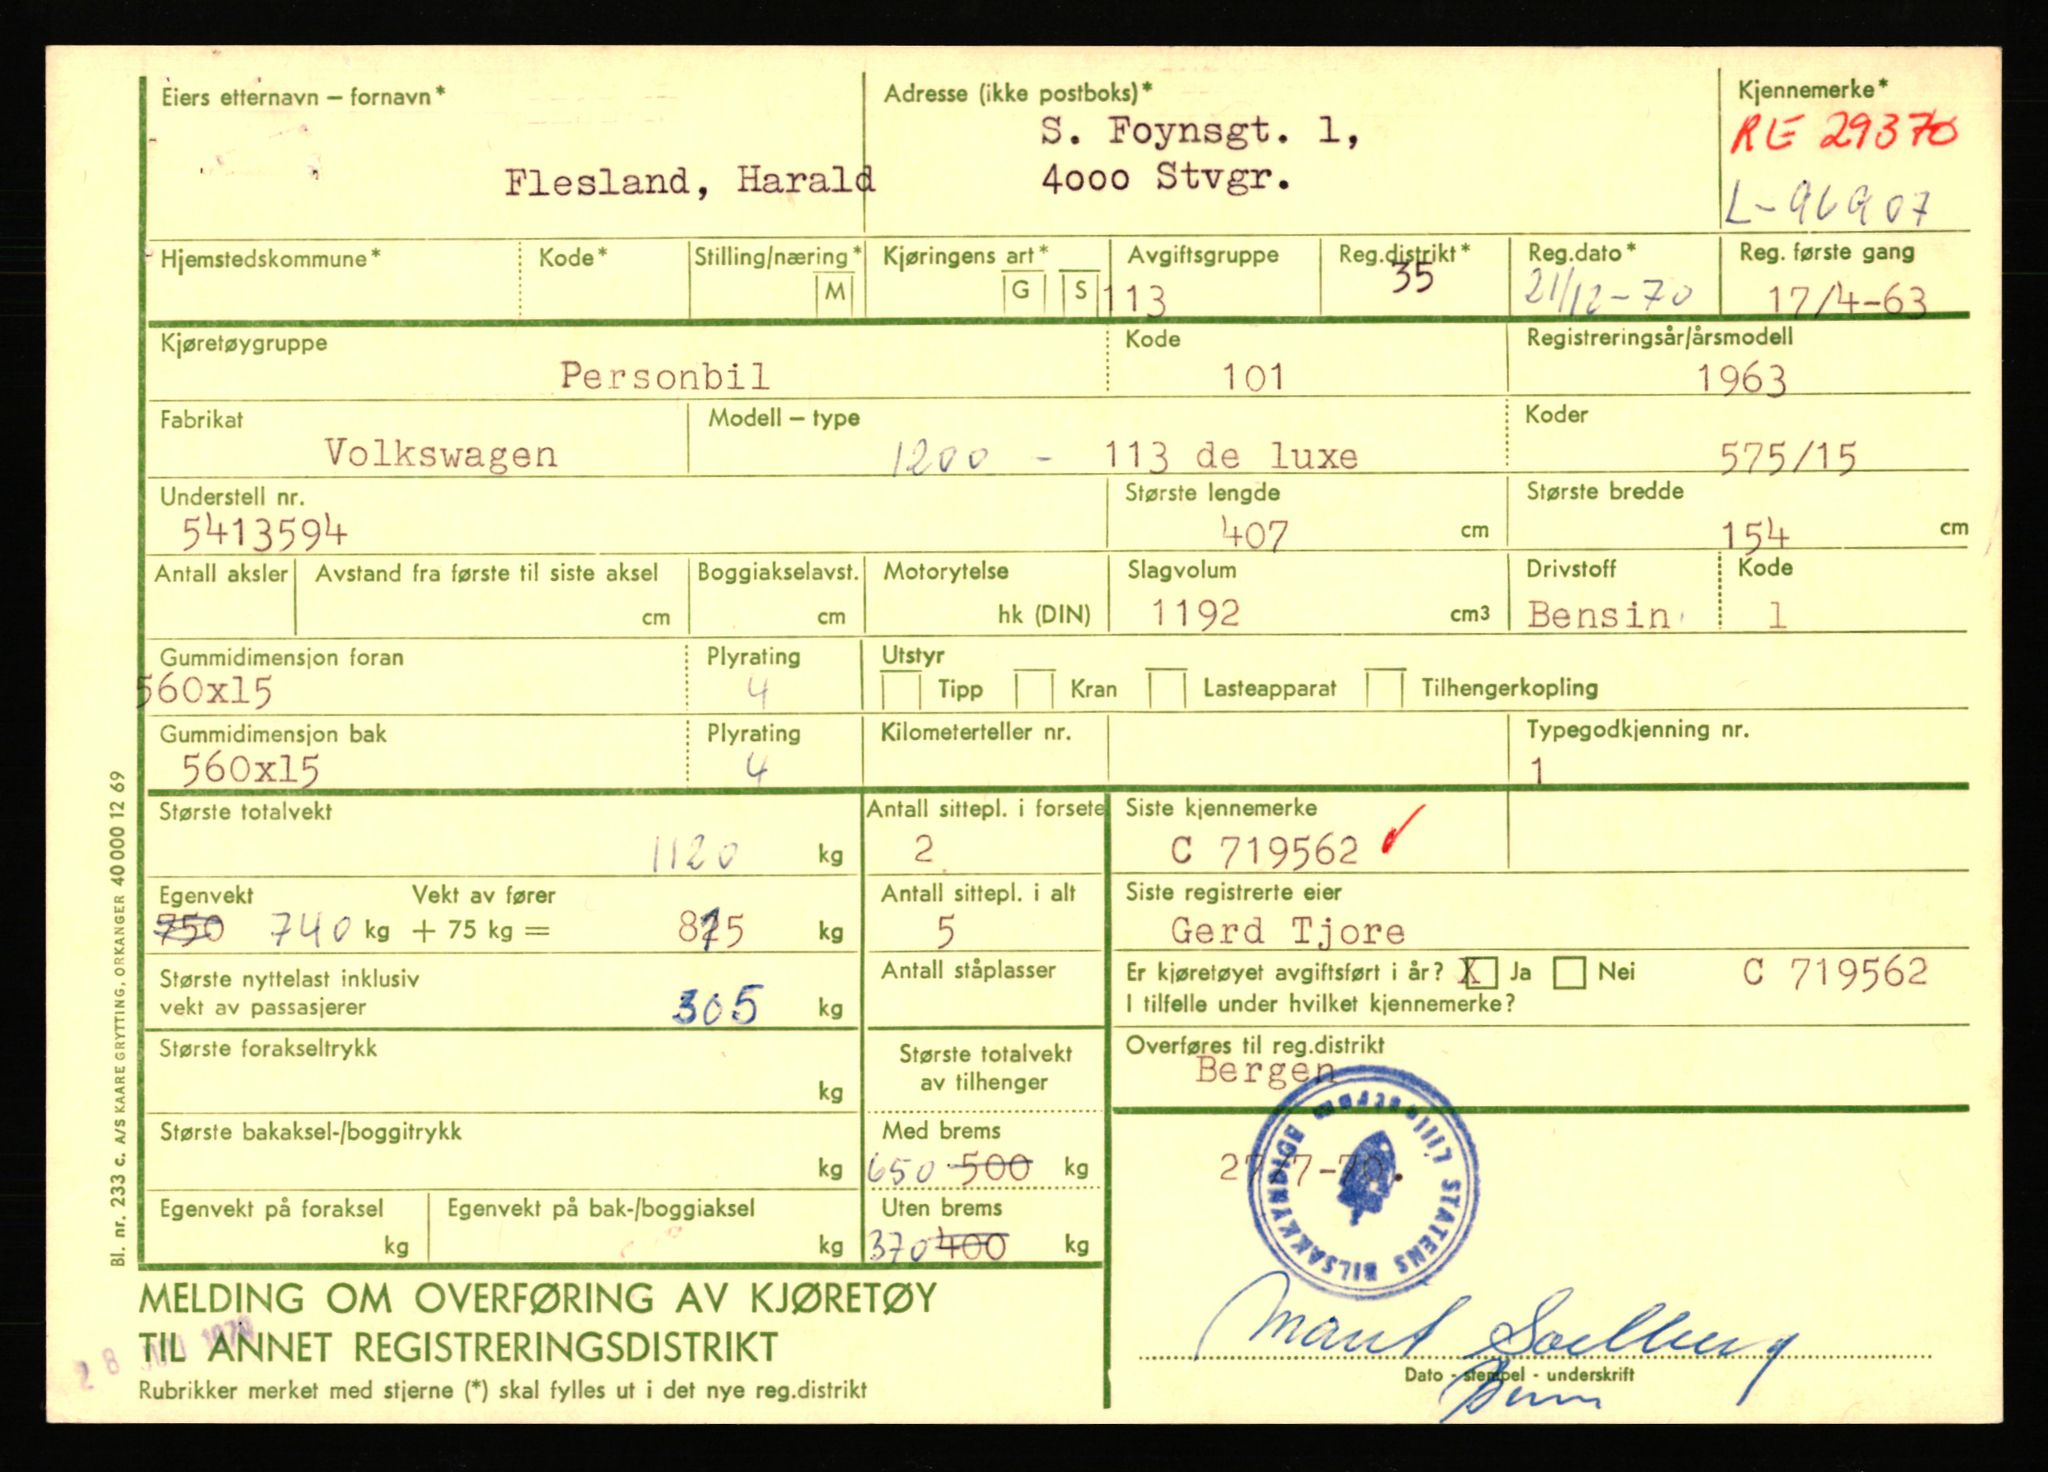 Eiers etternavn – fornavn*
Flesland, Harald
Adresse (ikke postboks)*
S. Foynsgt. 1,
4000 Stvgr.
Kjennemerke*
RE 29370
L-96907
Hjemstedskommune*
Kode*
Stilling/næring*
M
Kjøringens art*
G S
Avgiftsgruppe
113
Reg.distrikt*
35
Reg.dato*
21/12-70
Reg. første gang
17/4-63
Kjøretøygruppe
Personbil
Kode
101
Registreringsår/årsmodell
1963
Fabrikat
Volkswagen
Modell – type
1200 - 113 de luxe
Koder
575/15
Understell nr.
5413594
Største lengde
407 cm
Største bredde
154 cm
Antall aksler
Avstand fra første til siste aksel
cm
Boggiakselavst.
cm
Motorytelse
hk (DIN)
Slagvolum
1192 cm3
Drivstoff
Bensin
Kode
1
Gummidimensjon foran
560x15
Plyrating
4
Utstyr
Tipp Kran Lasteapparat Tilhengerkopling
Gummidimensjon bak
560x15
Plyrating
4
Kilometerteller nr.
Typegodkjenning nr.
1
Største totalvekt
1120 kg
Antall sittepl. i forsete
2
Siste kjennemerke
C 719562
Egenvekt Vekt av fører
750 740 kg + 75 kg = 815 kg
Antall sittepl. i alt
5
Siste registrerte eier
Gerd Tjore
Største nyttelast inklusiv
vekt av passasjerer
305 kg
Antall ståplasser
Er kjøretøyet avgiftsført i år? X Ja Nei C 719562
I tilfelle under hvilket kjennemerke?
Største forakseltrykk
kg
Største totalvekt
av tilhenger
Overføres til reg.distrikt
Bergen
Største bakaksel-/boggitrykk
kg
Med brems
650 500 kg
27/7-70.
STATENS BILSAKKYNDIGE Lillestrøm
Egenvekt på foraksel
kg
Egenvekt på bak-/boggiaksel
kg
Uten brems
370 400 kg
MELDING OM OVERFØRING AV KJØRETØY
TIL ANNET REGISTRERINGSDISTRIKT
Rubrikker merket med stjerne (*) skal fylles ut i det nye reg.distrikt
Dato - stempel - underskrift
Bl. nr. 233 c. A/S KAARE GRYTTING, ORKANGER 40 000 12 69